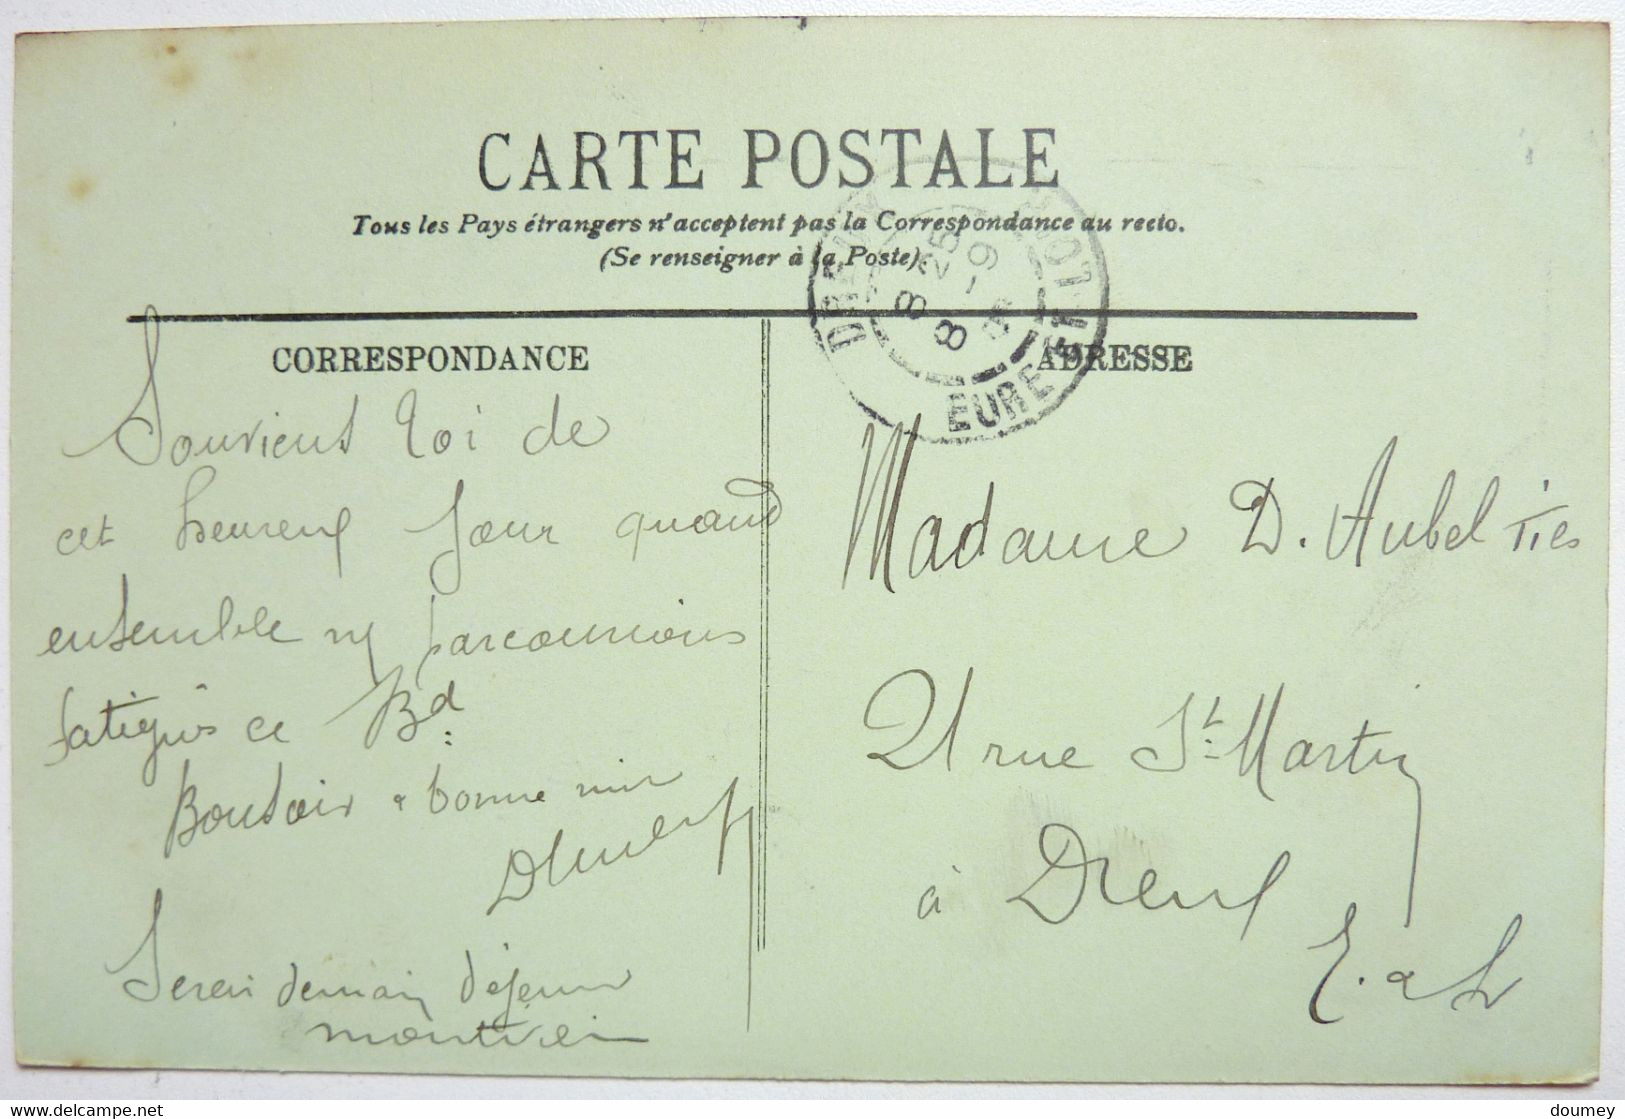 CARTE POSTALE
Tous les Pays étrangers n'acceptent pas la Correspondance au recto.
(Se renseigner à la Poste).
DREUX
EURE ET LOIR
8 25
8 -9
CORRESPONDANCE
ADRESSE
Souviens toi de
cet heureux jour quand
ensemble ns parcourrions
fatigués ce Bd.
Bonsoir & bonne nuit
Serai demain déjeuner
Madame D. Aubel
21 rue St. Martin
à Dreux
E. & L
doumey
www.delcampe.net